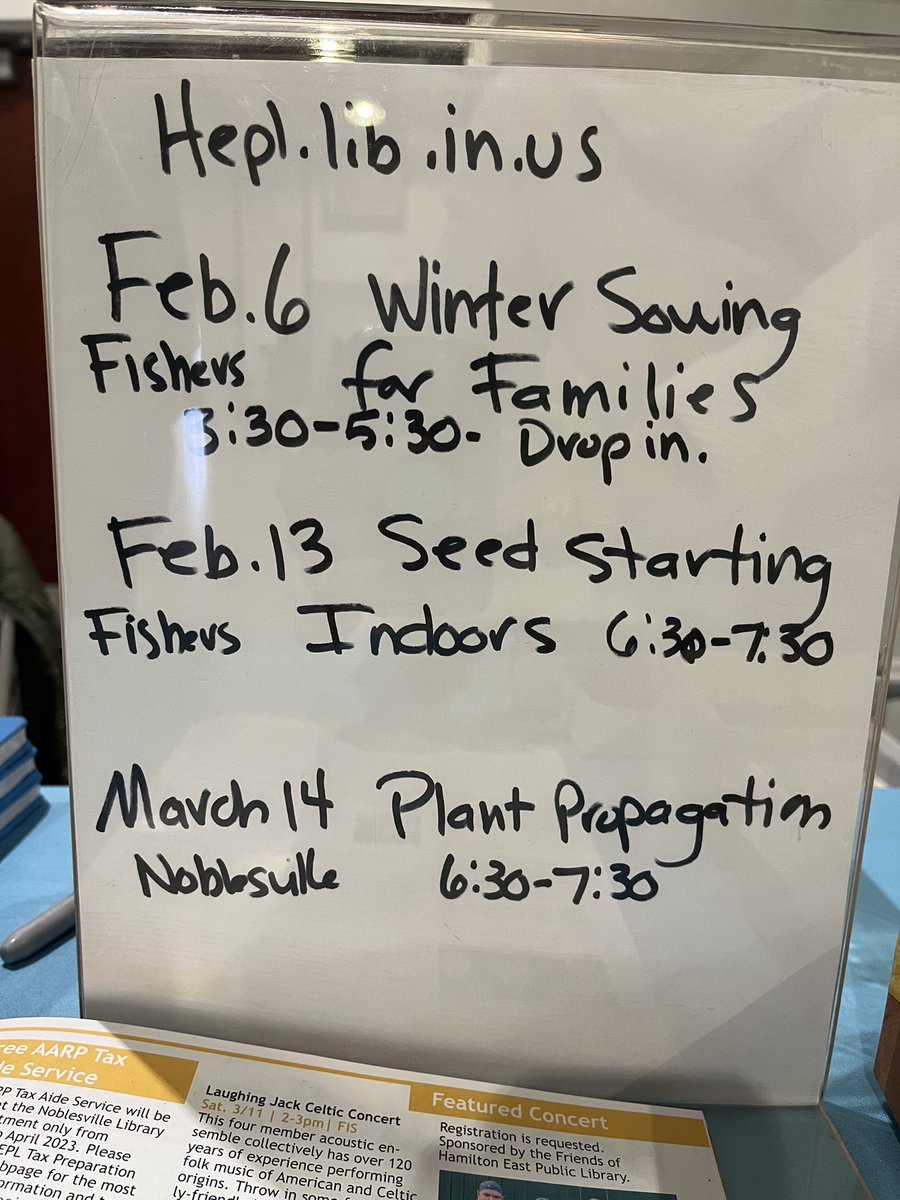 Hepl.lib.in.us
Feb.6 Winter Sowing
Fishers for Families
3:30-5:30- Drop in.
Feb.13 Seed Starting
Fishers Indoors 6:30-7:30
March 14 Plant Propagation
Noblesville 6:30-7:30
ree AARP Tax
de Service
RP Tax Aide Service will be
t the Noblesville Library
tment only from
April 2023. Please
EPL Tax Preparation
bpage for the most
ormation and
Laughing Jack Celtic Concert
Sat. 3/11 | 2-3pm| FIS
This four member acoustic en-
semble collectively has over 120
years of experience performing
folk music of American and Celtic
origins. Throw in some
ly-friendl
Featured Concert
Registration is requested.
Sponsored by the Friends of
Hamilton East Public Library.